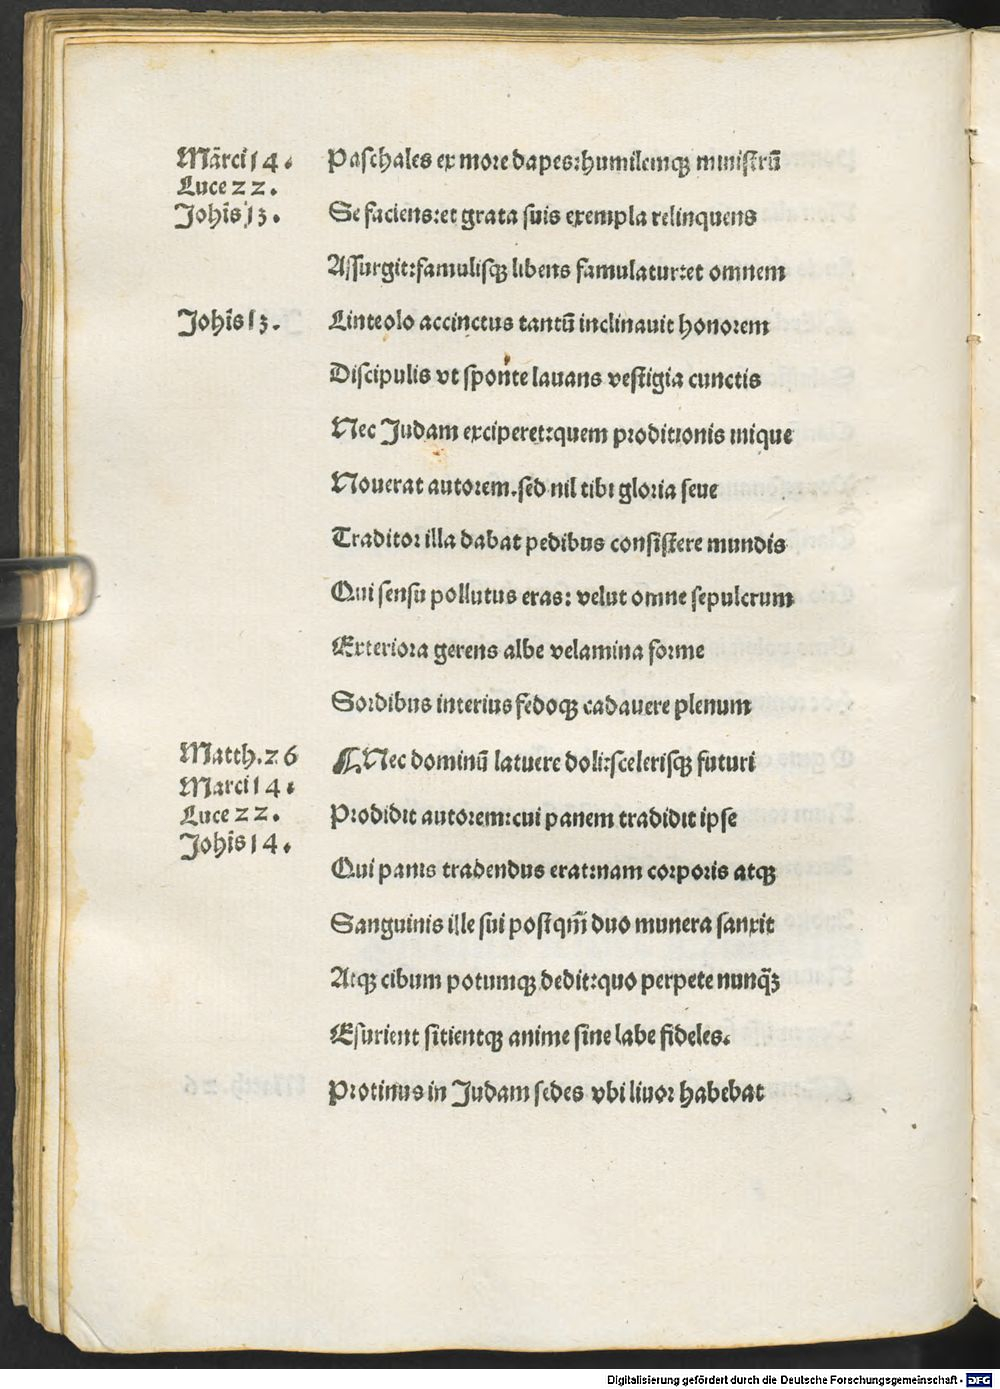 Marci 14. Paschales ex more dapes: humilemqꝫ ministrū
Luce 22.
Johīs 13. Se faciens: et grata suis exempla relinquens
Assurgit: famulisqꝫ libens famulatur: et omnem
Johīs 13. Linteolo accinctus tantū inclinauit honorem
Discipulis vt sponte lauans vestigia cunctis
Nec Judam exciperet: quem proditionis inique
Nouerat autorem. sed nil tibi gloria seue
Traditor illa dabat pedibus consistere mundis
Qui sensu pollutus eras: velut omne sepulcrum
Exteriora gerens albe velamina forme
Sordibus interius fedoqꝫ cadauere plenum
Matth. 26 ⸿ Nec dominū latuere doli: scelerisqꝫ futuri
Marci 14.
Luce 22. Prodidit autorem: cui panem tradidit ipse
Johīs 14.
Qui panis tradendus erat: nam corporis atqꝫ
Sanguinis ille sui postqm̄ duo munera sanxit
Atqꝫ cibum potumqꝫ dedit: quo perpete nunq̄ꝫ
Esurient sitientqꝫ anime sine labe fideles.
Protinus in Judam sedes vbi liuor habebat
Digitalisierung gefördert durch die Deutsche Forschungsgemeinschaft - DFG